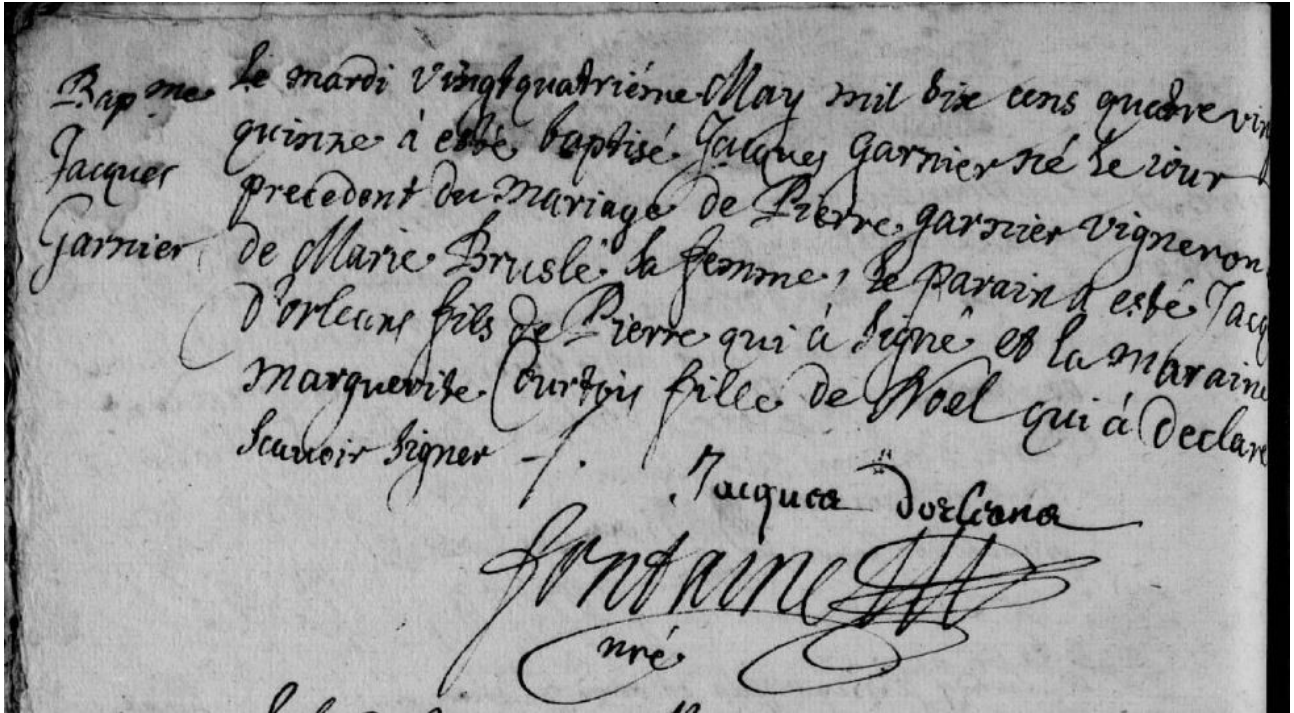 Bap^me
Jacques
Garnier
Le mardi vingtquatriéme May mil six cens quatre vin
quinze à esté baptisé Jacques Garnier né le iour
precedent du mariage de Pierre garnier vigneron
de Marie Bruslé sa femme, le parain a esté Jacq
D'orleans fils de Pierre qui à signé et la maraine
marguerite Courtois fille de Noel qui à declaré
scavoir signer
Jacques Dorleans
fontaine